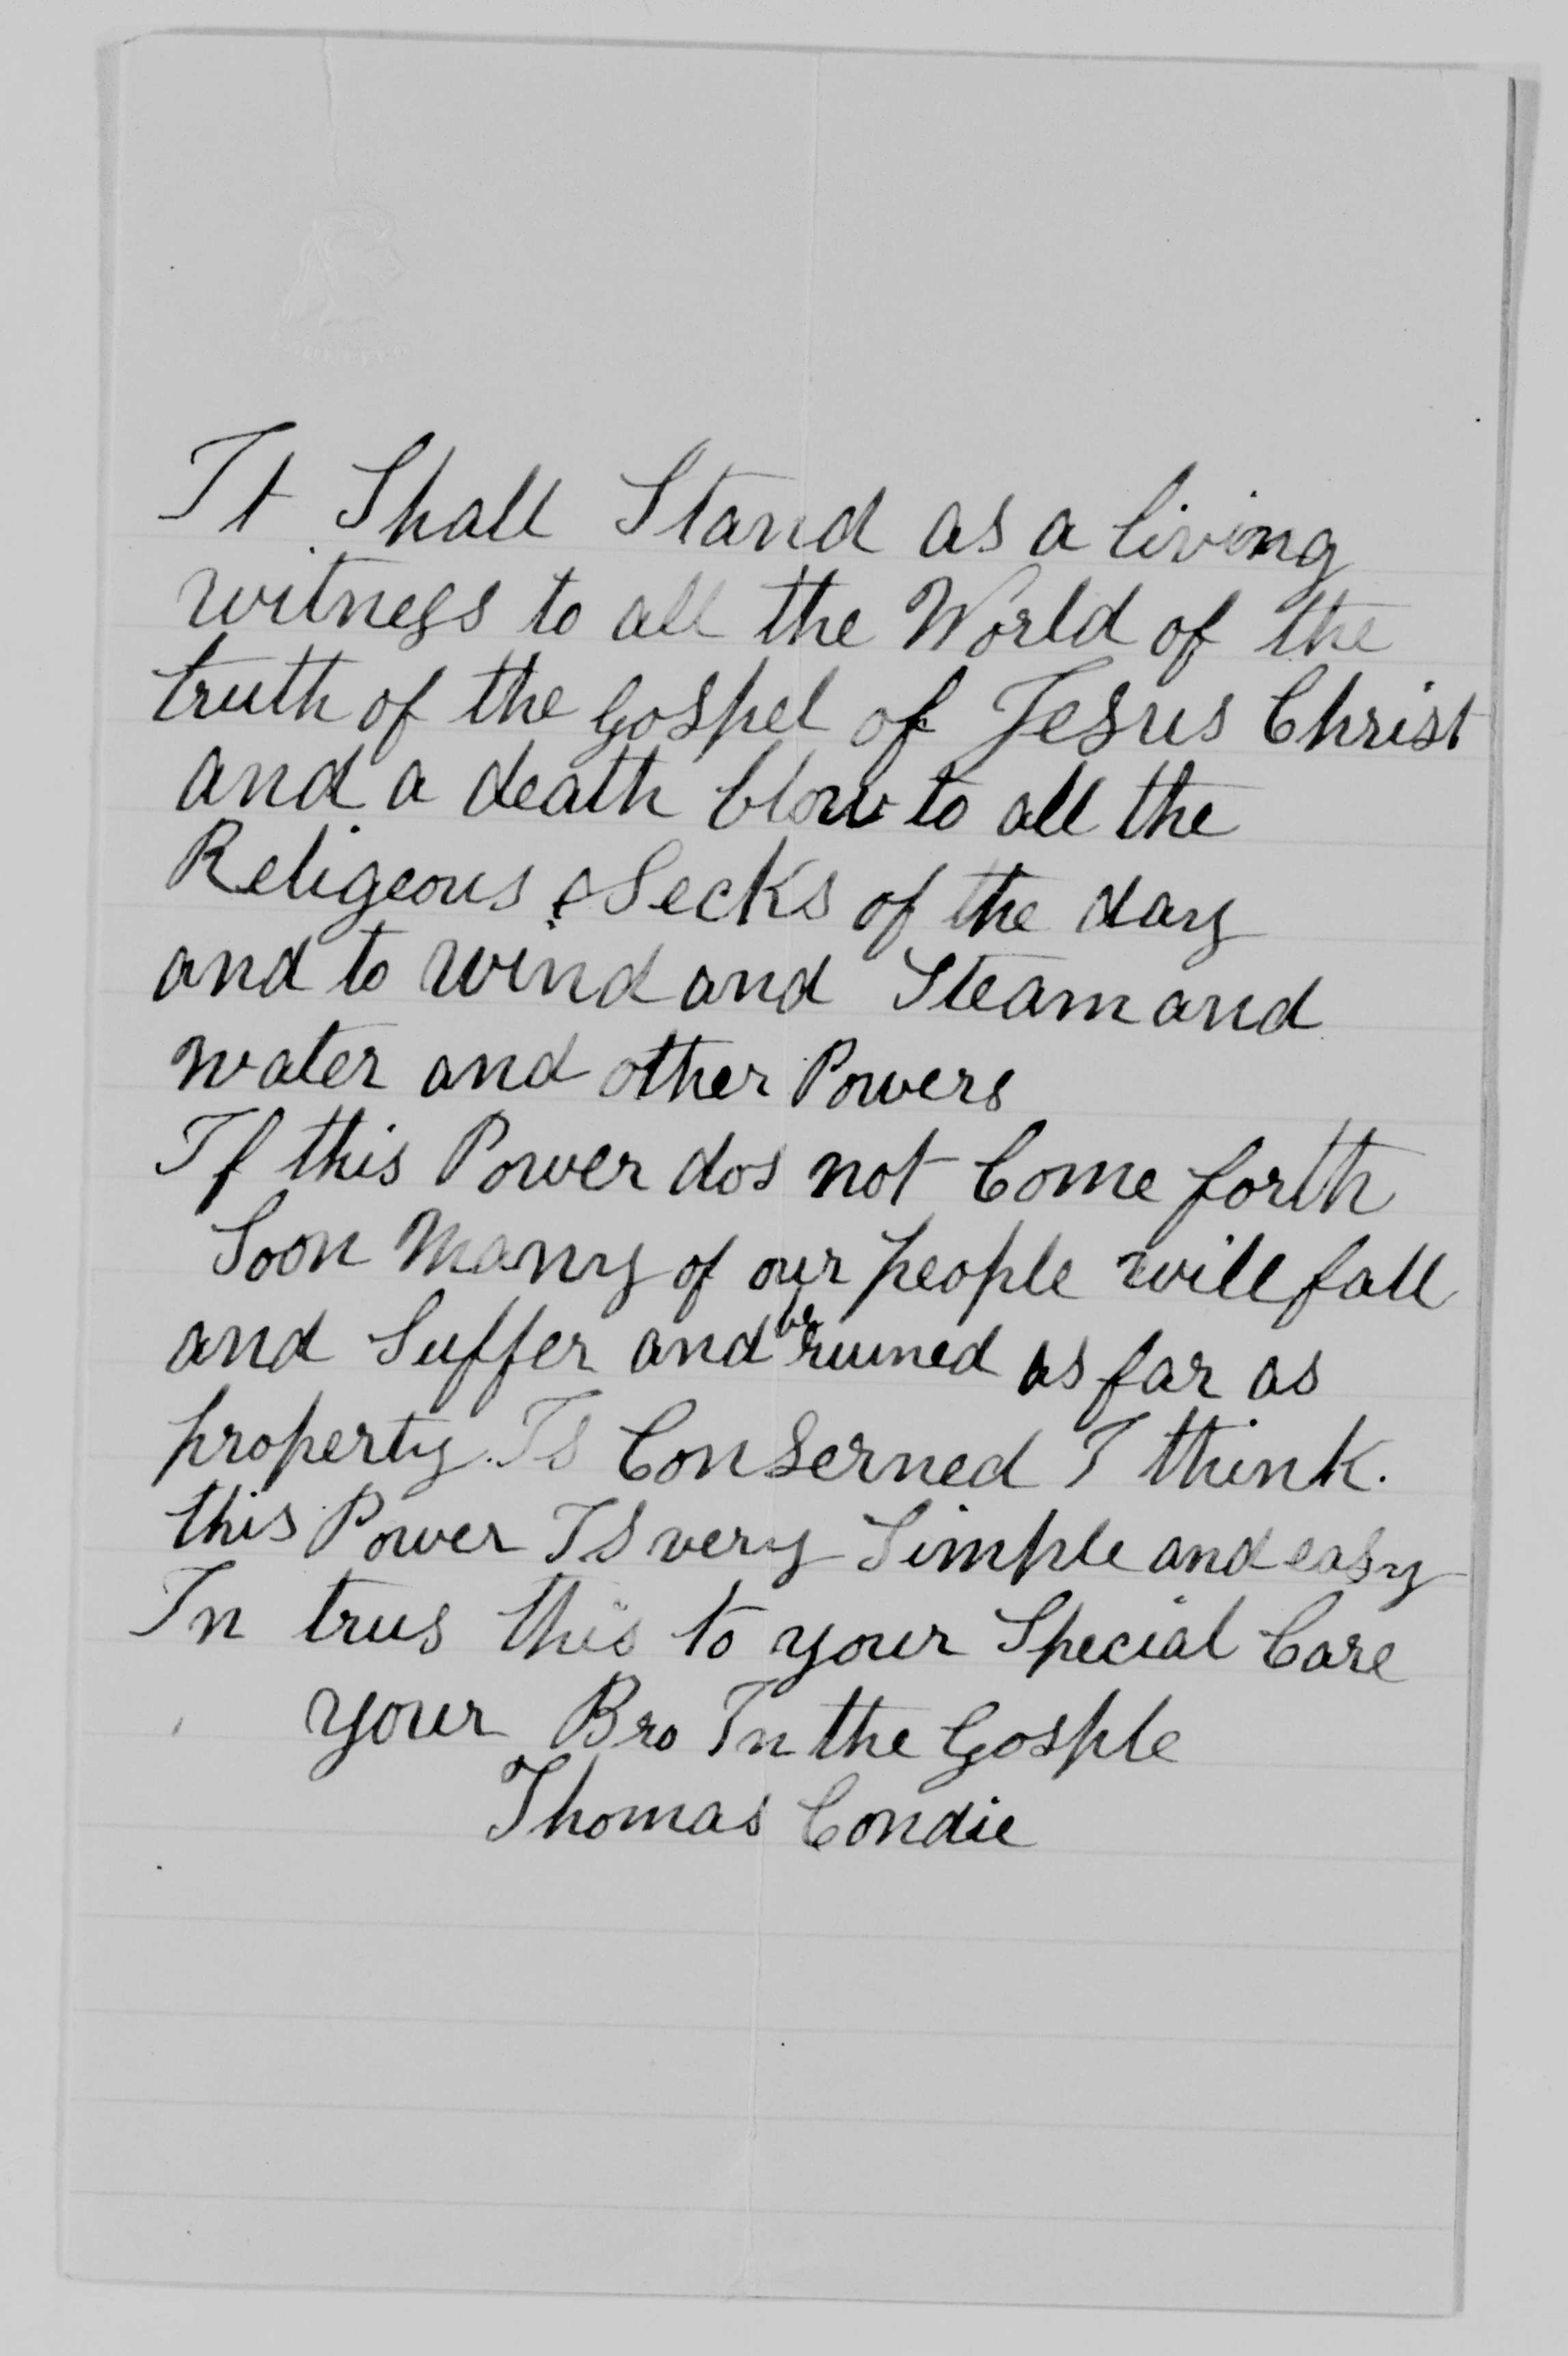 It Shall Stand as a living
witness to all the World of the
truth of the Gospel of Jesus Christ
and a death blow to all the
Religeous Secks of the day
and to wind and Steam and
water and other Powers
If this Power dos not Come forth
Soon Many of our people will fall
and Suffer and be ruined as far as
property Is Conserned I think.
this Power Is very Simple and easy
In trus this to your Special Care
your Bro In the Gosple
Thomas Condie